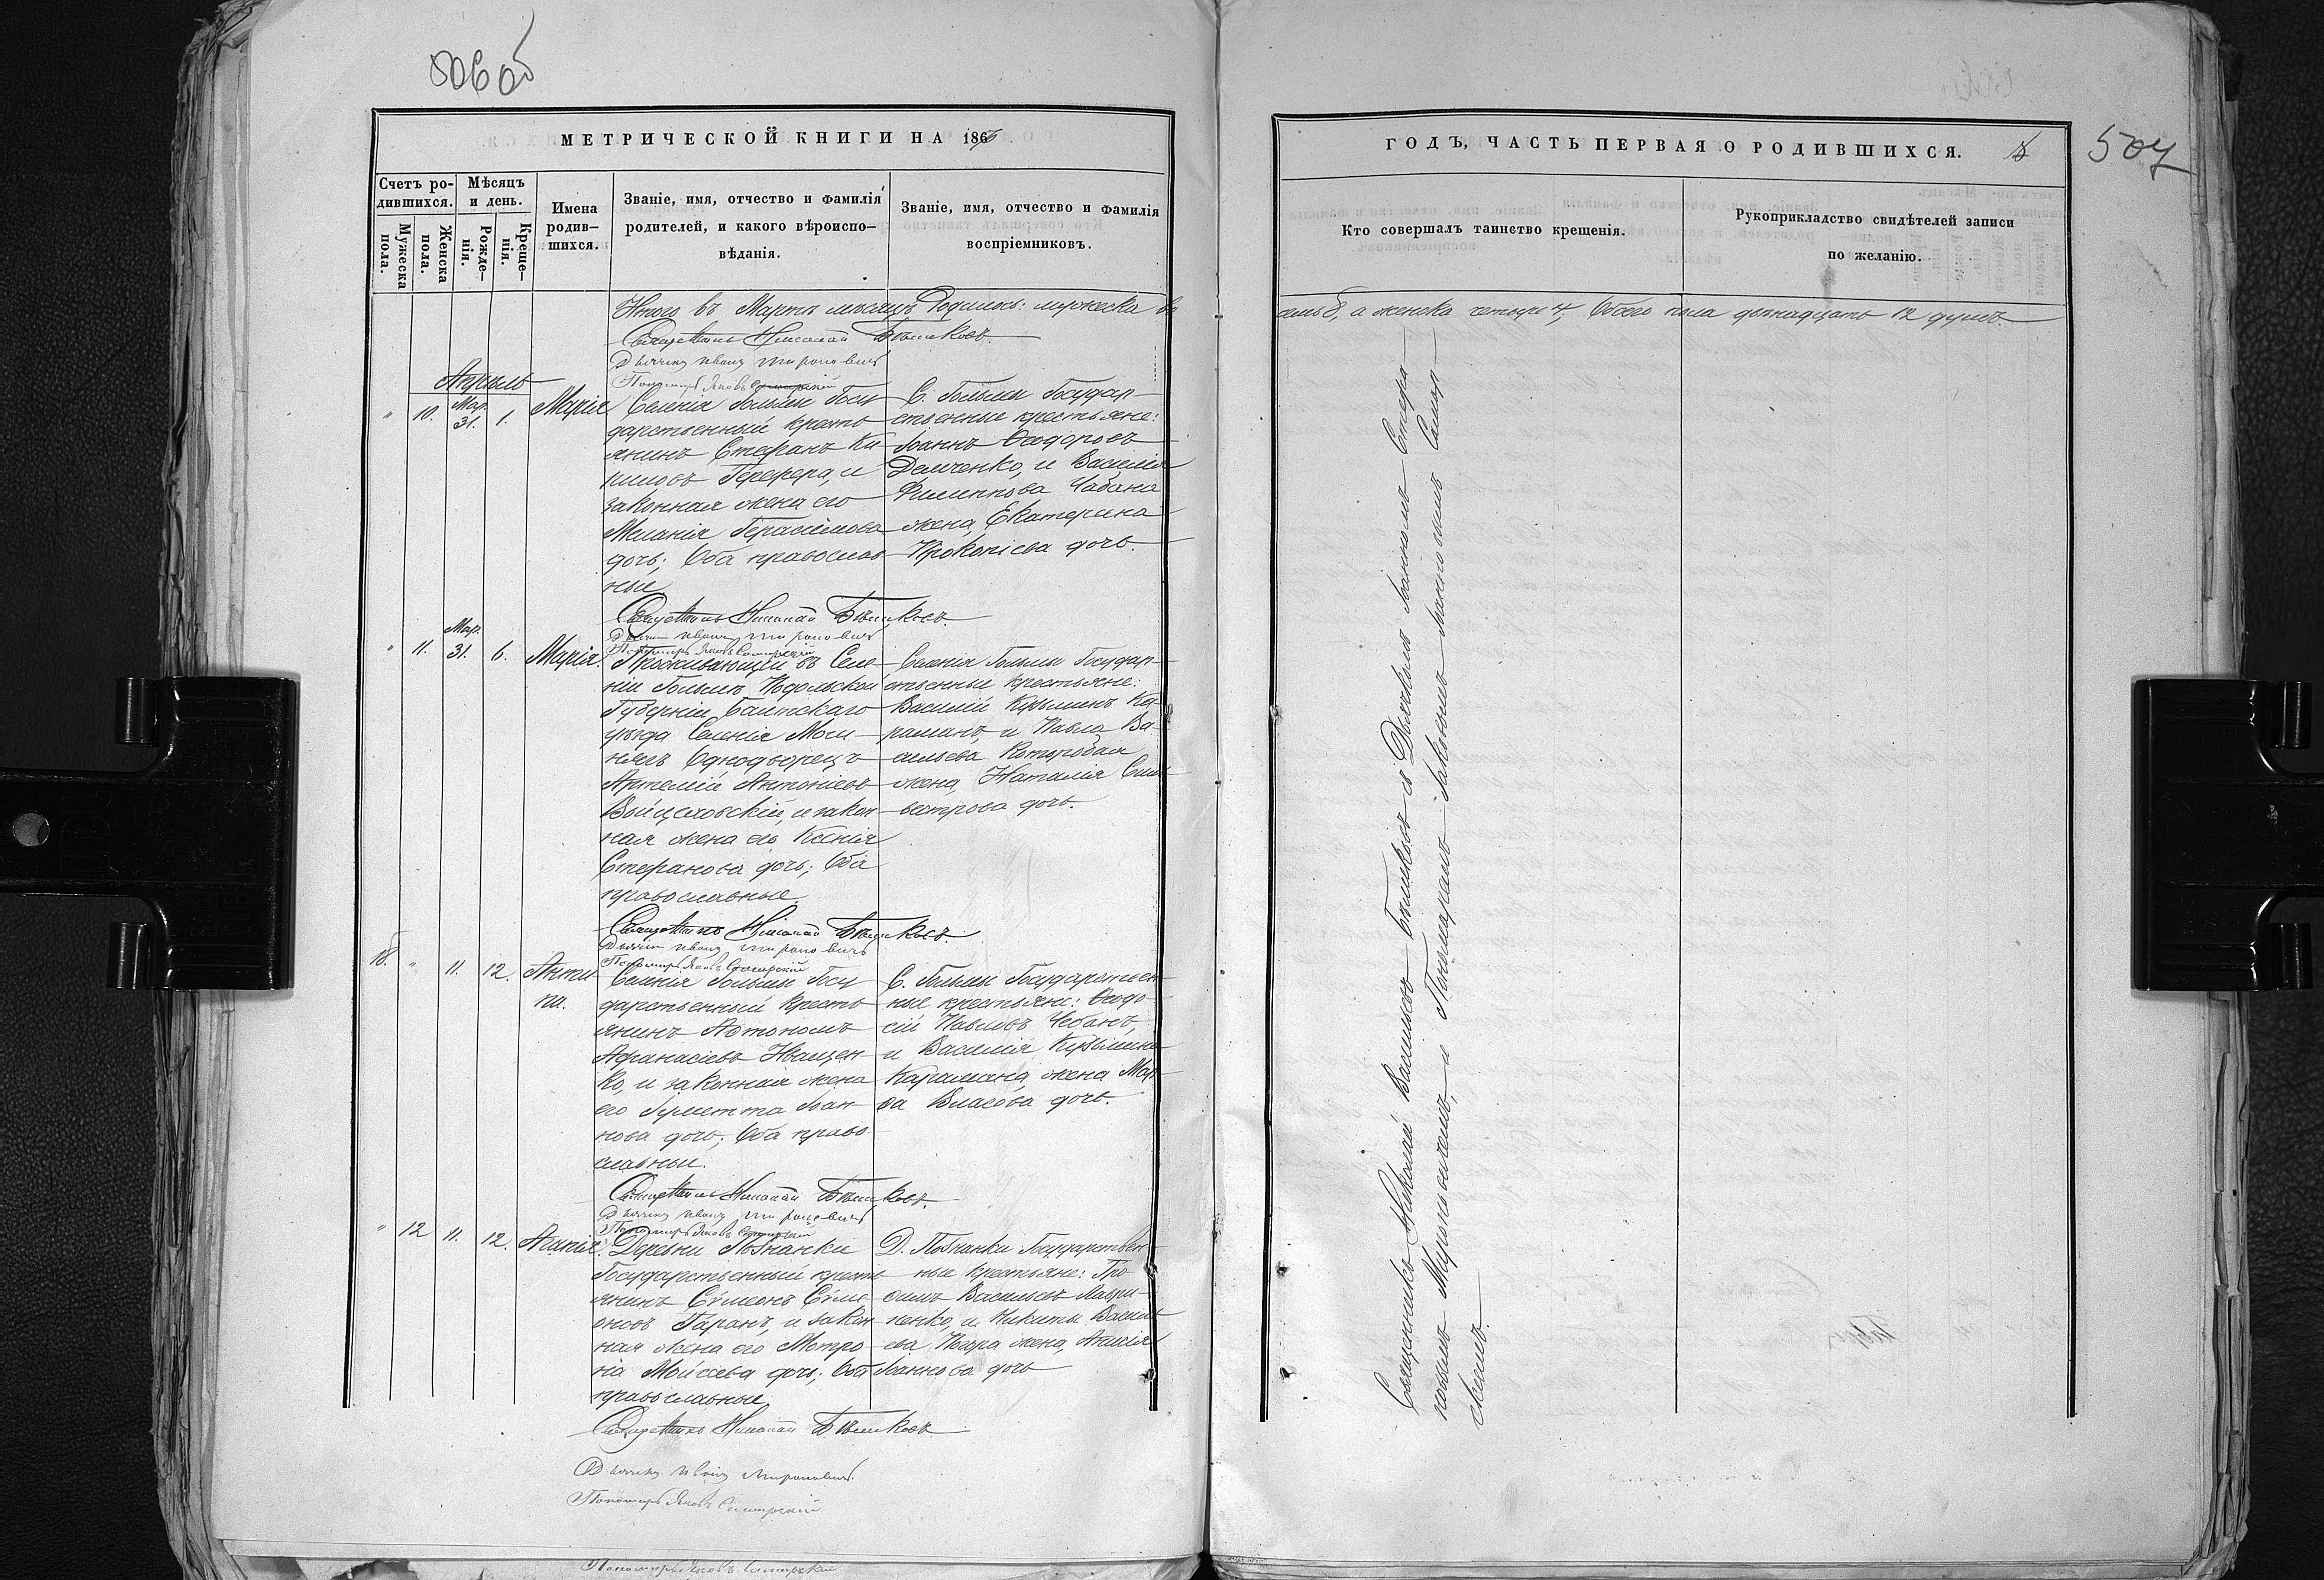 506об
МЕТРИЧЕСКОЙ КНИГИ НА 186
Счетъ ро-
дившихся.
Мѣсяцъ
и день.
Мужеска
пола.
Женска
пола.
Рожде-
нія.
Креще-
нія.
Имена
родив-
шихся.
Званіе, имя, отчество и фамилія
родителей, и какого вѣроиспо-
вѣданія.
Званіе, имя, отчество и фамилія
воспріемниковъ.
Итого въ Мартѣ мѣсяцѣ Родилось: мужеска во
Священникъ Николай Бѣликовъ
Дьячекъ Иванъ Мироновичъ
Пономарь Яковъ Самарскій
Апрѣль
" 10. Мар. 31. 1. Марія
Селенія Гольмы Госу
дарственный кресть
янинъ Стефанъ Ки
риловъ Герефера, и
законная жена его
Меланія Герасимова
дочь; Оба православ
ные
С. Гольмы Государ-
ственные крестьяне:
Іоаннъ Ѳеодоровъ
Демченко, и Василія
Филиппова Чабана
жена, Екатерина
Прокопіева дочь.
Священникъ Николай Бѣликовъ.
Дьячекъ Иванъ Мироновичъ
Пономарь Яковъ Самарскій
" 11. Мар. 31. 6. Марія.
Проживающій въ Селе-
ніи Гольмѣ Подольской
Губерніи Балтскаго
уѣзда Селенія
Однодворецъ
Артемій Антоніевъ
Войцеховскій, и закон
ная жена его Ксенія
Стефанова дочь; Оба
православные
Селенія Гольмы Государ-
ственные крестьяне:
Василій Кузьминъ Ка-
раманъ, и Павла Ва-
сильева
жена, Наталія Силь
вестрова дочь.
Священникъ Николай Бѣликовъ.
Дьячекъ Иванъ Мироновичъ
Пономарь Яковъ Самарскій
18. " 11. 12. Анти
па.
Селенія Гольмы Госу
дарственный кресть
янинъ Автономъ
Афанасіевъ Иващен
ко, и законная жена
его Іулитта Іоан
нова дочь; Оба право
славные.
С. Гольмы Государствен
ные крестьяне: Ѳеодо-
сій Павловъ Чебанъ,
и Василія Кузьмина
Карамана, жена Мар
фа Власова дочь.
Священникъ Николай Бѣликовъ.
Дьячекъ Иванъ Мироновичъ
Пономарь Яковъ Самарскій
" 12 11. 12. Агапія.
Деревни Познанки
Государственный кресть
янинъ Сѵмеонъ Сѵме
оновъ Гаранъ, и закон
ная жена его Матро
на Моисеева дочь; Оба
православные
Д. Познанки Государствен
ные крестьяне: Тро
фимъ Васильевъ Лаври-
ненко, и Никиты Василь
ева жена,
Іоаннова дочь
Священникъ Николай Бѣликовъ
Дьячекъ Иванъ Мироновичъ.
Пономарь Яковъ Самарскій
Пономарь Яковъ Самарскій
ГОДЪ, ЧАСТЬ ПЕРВАЯ О РОДИВШИХСЯ.
507
Кто совершалъ таинство крещенія.
Рукоприкладство свидѣтелей записи
по желанію.
семь 8, а женска четыре 4, Обоего пола двѣнадцать 12 душъ.
Священникъ Николай Васильевъ Бѣликовъ съ Дьячкомъ Іоанномъ Стефа
новымъ Мироновичемъ, и Пономаремъ Іаковомъ Іаковымъ Самар
скимъ.